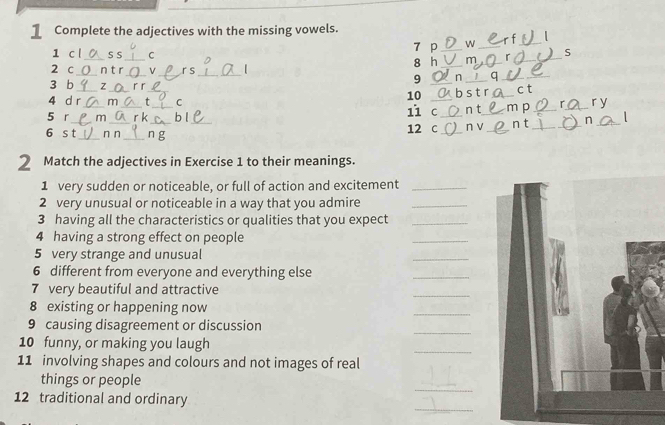 1 Complete the adjectives with the missing vowels.
1 cl a ss i c
2 c o ntr o v e rs i a l
3 b i z a rr e
4 dr a m a t i c
5 r e m a rk a bl e
6 st u nn _ ng
7 p o w e rf u l
8 h u m o r o u s
9 u n i q u e
10 a bstr a ct
11 c o nt e mp o r a ry
12 c o nv e nt i o n a l
2 Match the adjectives in Exercise 1 to their meanings.
1 very sudden or noticeable, or full of action and excitement
2 very unusual or noticeable in a way that you admire
3 having all the characteristics or qualities that you expect
4 having a strong effect on people
5 very strange and unusual
6 different from everyone and everything else
7 very beautiful and attractive
8 existing or happening now
9 causing disagreement or discussion
10 funny, or making you laugh
11 involving shapes and colours and not images of real
things or people
12 traditional and ordinary